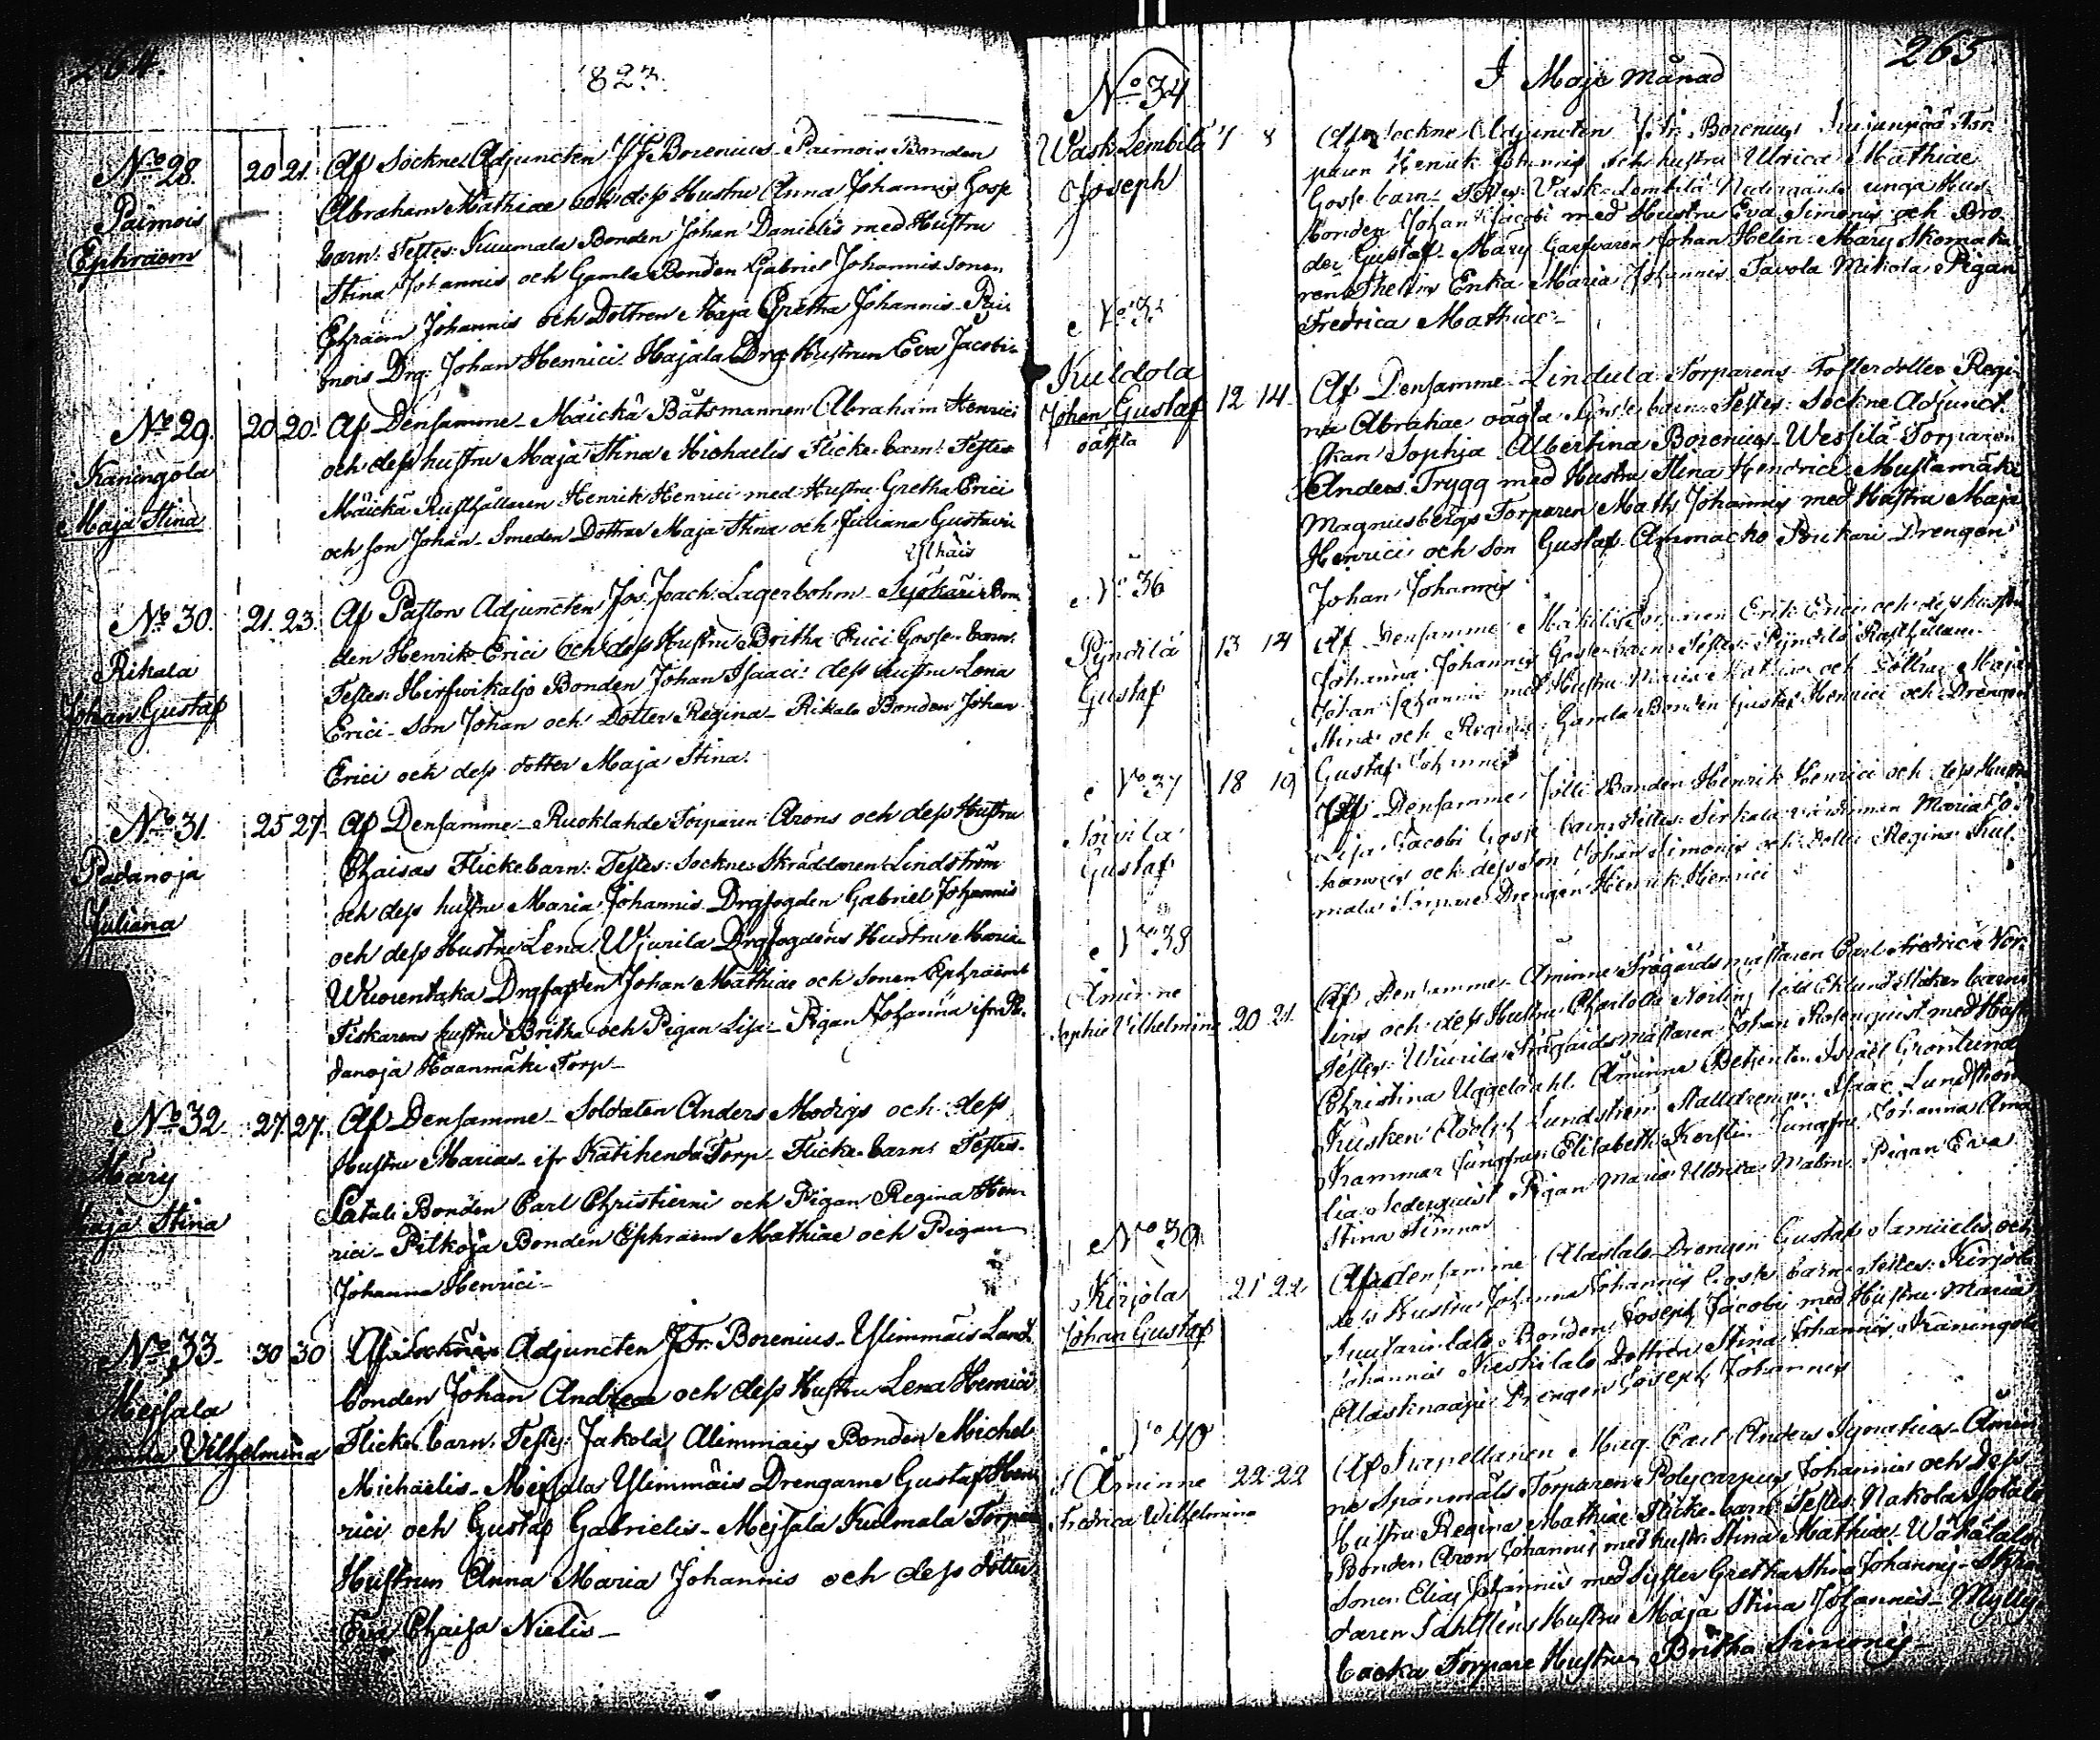 264.
1823.
No 28.
Paimois
Ephraem
20 21. Af Sockne Adjuncten J Fr Borenius - Paimois Bonden
Abraham Mathiae och dess Hustru Anna Johannis Gosse
barn: Testes: Kuumala Bonden Johan Danielis med Hustru
Stina Johannis och Gamla Bonden Gabriel Johannis sonen
Ephraim Johannis och Dottren Maja Gretha Johannis - Pai-
mois Drg: Johan Henrici - Hajala Drg Hustrun Eva Jacobi -
No 29.
Kaningola
Maja Stina
20 20. Af Densamme - Mäickä Båtsmannen Abraham Henrici
och dess hustru Maja Stina Michaelis Flicke barn: Testes
Mäickä Rusthållaren Henrik Henrici med Hustru Gretha Erici
och son Johan - Smeden Dottrar Maja Stina och Juliana Gustavi
No 30.
Rikala
Johan Gustaf
21. 23. Af Pastors Adjuncten Jos. Joach. Lagerbohm - Bon
den Henrik Erici och dess Hustru Britha Erici Gosse barn.
Testes: Hirfwikaljo Bonden Johan Isaaci dess hustru Lena
Erici - Son Johan och Dotter Regina - Rikala Bonden Johan
Erici och dess dotter Maja Stina.
No 31.
Padanoja
Juliana
25 27. Af Densamme - Ruoklahde Torparen Arons och dess Hustru
Chaisas Flickebarn: Testes: Sockne Skräddaren Lindström
och dess hustru Maria Johannis Drgfogden Gabriel Johannis
och dess Hustru Lena. Wjurila Drgfogdens Hustru Maria -
Wuorentaka Drgfogden Johan Mathiae och Sonen Ephraim
Fiskarens hustru Britha och Pigan Lisa - Pigan Johanna ifr. Pa-
danoja Haanmäki Torp -
No 32.
Märy
Maja Stina
27. 27. Af Densamme - Soldaten Anders Modigs och dess
Hustru Marias - ifr Katihenda Torp - Flicke barn: Testes -
Latali Bonden Carl Christierni och Pigan Regina Hen
rici - Pitkoja Bonden Ephraim Mathiae och Pigan
Johanna Henrici -
No 33.
Mejsala
Vilhelmina
30 30 Af Sockne Adjuncten J Fr. Borenius - Ylimmäis Land
bonden Johan Andreae och dess Hustru Lena Henrici
Flicke barn: Testes: Jakola Alimmais Bonden Michel
Michaelis - Mejsala Ylimmäis Drengarne Gustaf Hen
rici och Gustaf Gabrielis - Mejsala Kulmala Torpare
Hustrun Anna Maria Johannis och dess dotter
Eva Chaisa Nielis -
265
I Maji Månad
No 34
Wask Lembilä
Joseph
7 8 Af Sockne Adjuncten J. Fr. Borenius Tor
paren Henrik Johannis och hustru Ulrica Mathiae
Gosse barn - Testes: Vask Lembilä unga Hus-
bonden Johan Jacobi med Hustru Eva Simonis och Bro-
der Gustaf - Märy Garfvaren Johan Helin: Märy Skomaka
ren Thelins Enka Maria Johannis Tavola Mikola Pigan
Fredrica Mathiae -
No 35
Kuldola
Johan Gustaf
oäkta
12 14. Af Densamme - Lindula Torparens Fosterdotter Regi-
na Abrahae oägta Gosse barn: Testes: Sockne Adjunct
skan Sophia Albertina Borenius - Wessilä Torparen
Anders Trygg med Hustru Stina Hendrici Mustamäki
Magnusbergs Torparen Math. Johannis med Hustru Maja
Henrici och Son Gustaf - Ammacko Drengen
Johan Johannis
No 36
Pyndilä
Gustaf
13 14 Af Densamme - Mäkilä Torparen Erik Erici och dess hustru
Johanna Johannis Gosse barn: Testes: Pyndilä Rusthållaren
Johan Johannis med Hustru Maria och Döttrar Maja
Stina och Regina: Gamla Bonden Gustaf Henrici och Drengen
Gustaf Johannis
No 37
Toivila
Gustaf
18 19 Af Densamme Jolli Bonden Henrik Henrici och dess Hustru
Lisa Jacobi Gosse barn: Testes: Maria Jo
hannis och dess son Johan Simonis och Dotter Regina Kul-
mala Torpare Drengen Henrik Henrici
No 38
Åminne
Sophia Vilhelmina
20 21. Af Densamme - Åminne Trägårdsmästaren Carl Fredric Nor-
ling och dess Hustru Charlotta Norling född Eklund Flicke barn
Testes: Wiurila Trägårdsmästaren Johan Rosenquist med Hustru
Christina Uggeldahl. Åminne Betjenten Israel Grönlund
Kusken Adolph Lundström Stalldrengen Isaac Lundström
Kammar Jungfrun Elisabeth Kerstin Jungfru Johanna Ama
lia Sederquist Pigan Maria Ulrica Malm. Pigan Eva
Stina Simonis
No 39
Kirjola
Johan Gustaf
21 22 Af densamme Alastalo Drengen Gustaf Samuelis och
dess Hustru Johanna Johannis Gosse barn Testes: Kirjola
Bonden Joseph Jacobi med Hustru Maria
Johannis Keskitalo Dottren Stina Johannis Kaningola
Drengen Joseph Johannis
No 40
Åminne
Fredrica Wilhelmina
22 22 Af Kapellanen Mag. Carl Anders Ignatius - Åmin
ne Spanmäls Torparen Polycarpus Johannis och dess
Hustru Regina Mathiae Flicke barn Testes Nakola Isotalo
Bonden Aron Johannis med hustr. Stina Mathiae - Wähätalo
Sonen Elias Johannis med Syster Gretha Stina Johannis - Skräd
daren Sahlstens Hustru Maja Stina Johannis - Mylly
backa Torpare Hustrun Britha Simonis -